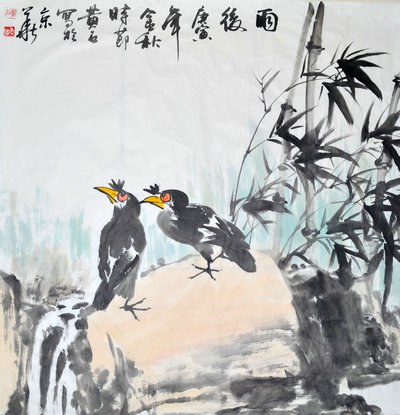 雨後
庚寅
年
金秋
時節
黄石
寫於
京華